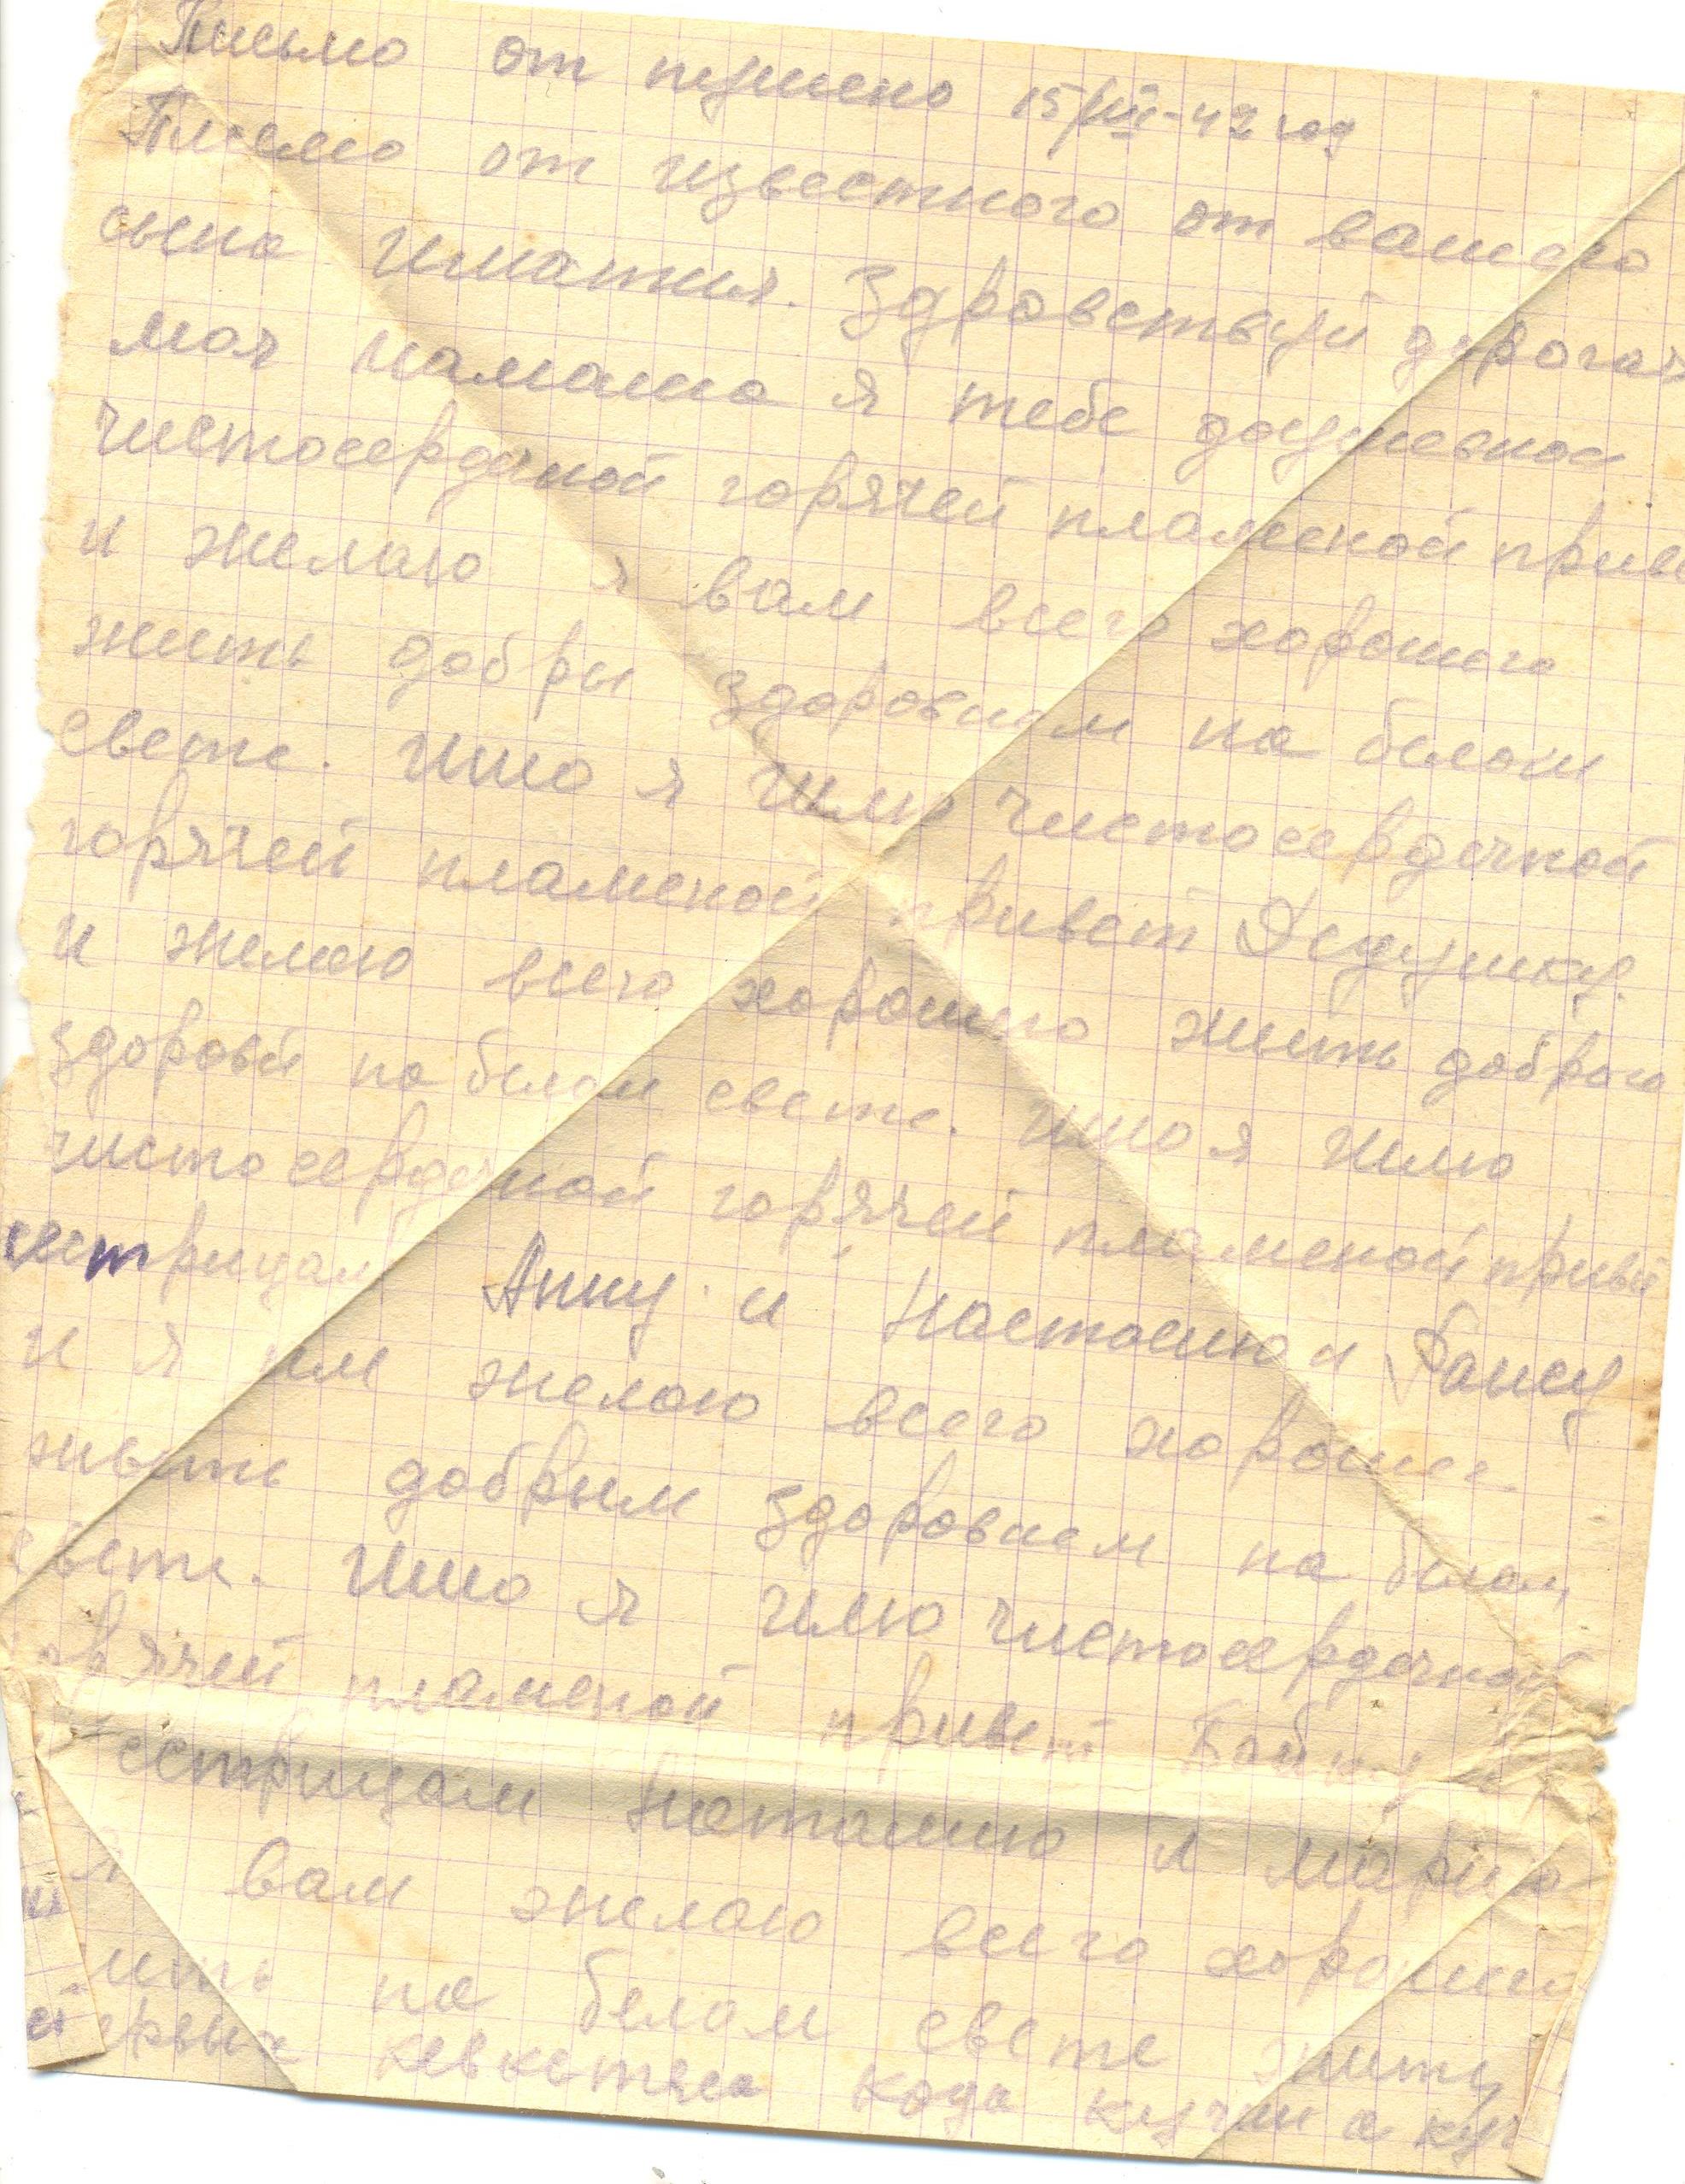 Письмо от пущено 15/VIII-42 год
Писмо от известного от вашего
сына Игнатия. Здравствуй дорогая
моя мамаша я тебе
чистосердечной горячей пламеной приве
и желаю я вам всего хорошего
жить добры здоровием на белом
свете. Ишо я шлю чистосердечной
горячей пламеной привет Дедушку.
и желаю всего хорошго жить доброго
здоровй на белом свете. ишо я шлю
чистосердечной горячей пламеной приве
сестрицам Анну и Настасию и Раису
и я им желаю всего хорошег
жывить добрым здоровием на белом
свете. Ишо я шлю чистосердечной
орячей пламеной привет Бабку и
сестрицам Наталию и Марию
я вам желаю всего хорошего
ить на белом свете
кода